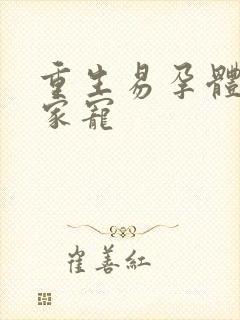 重生易孕體
家寵
崔善紅